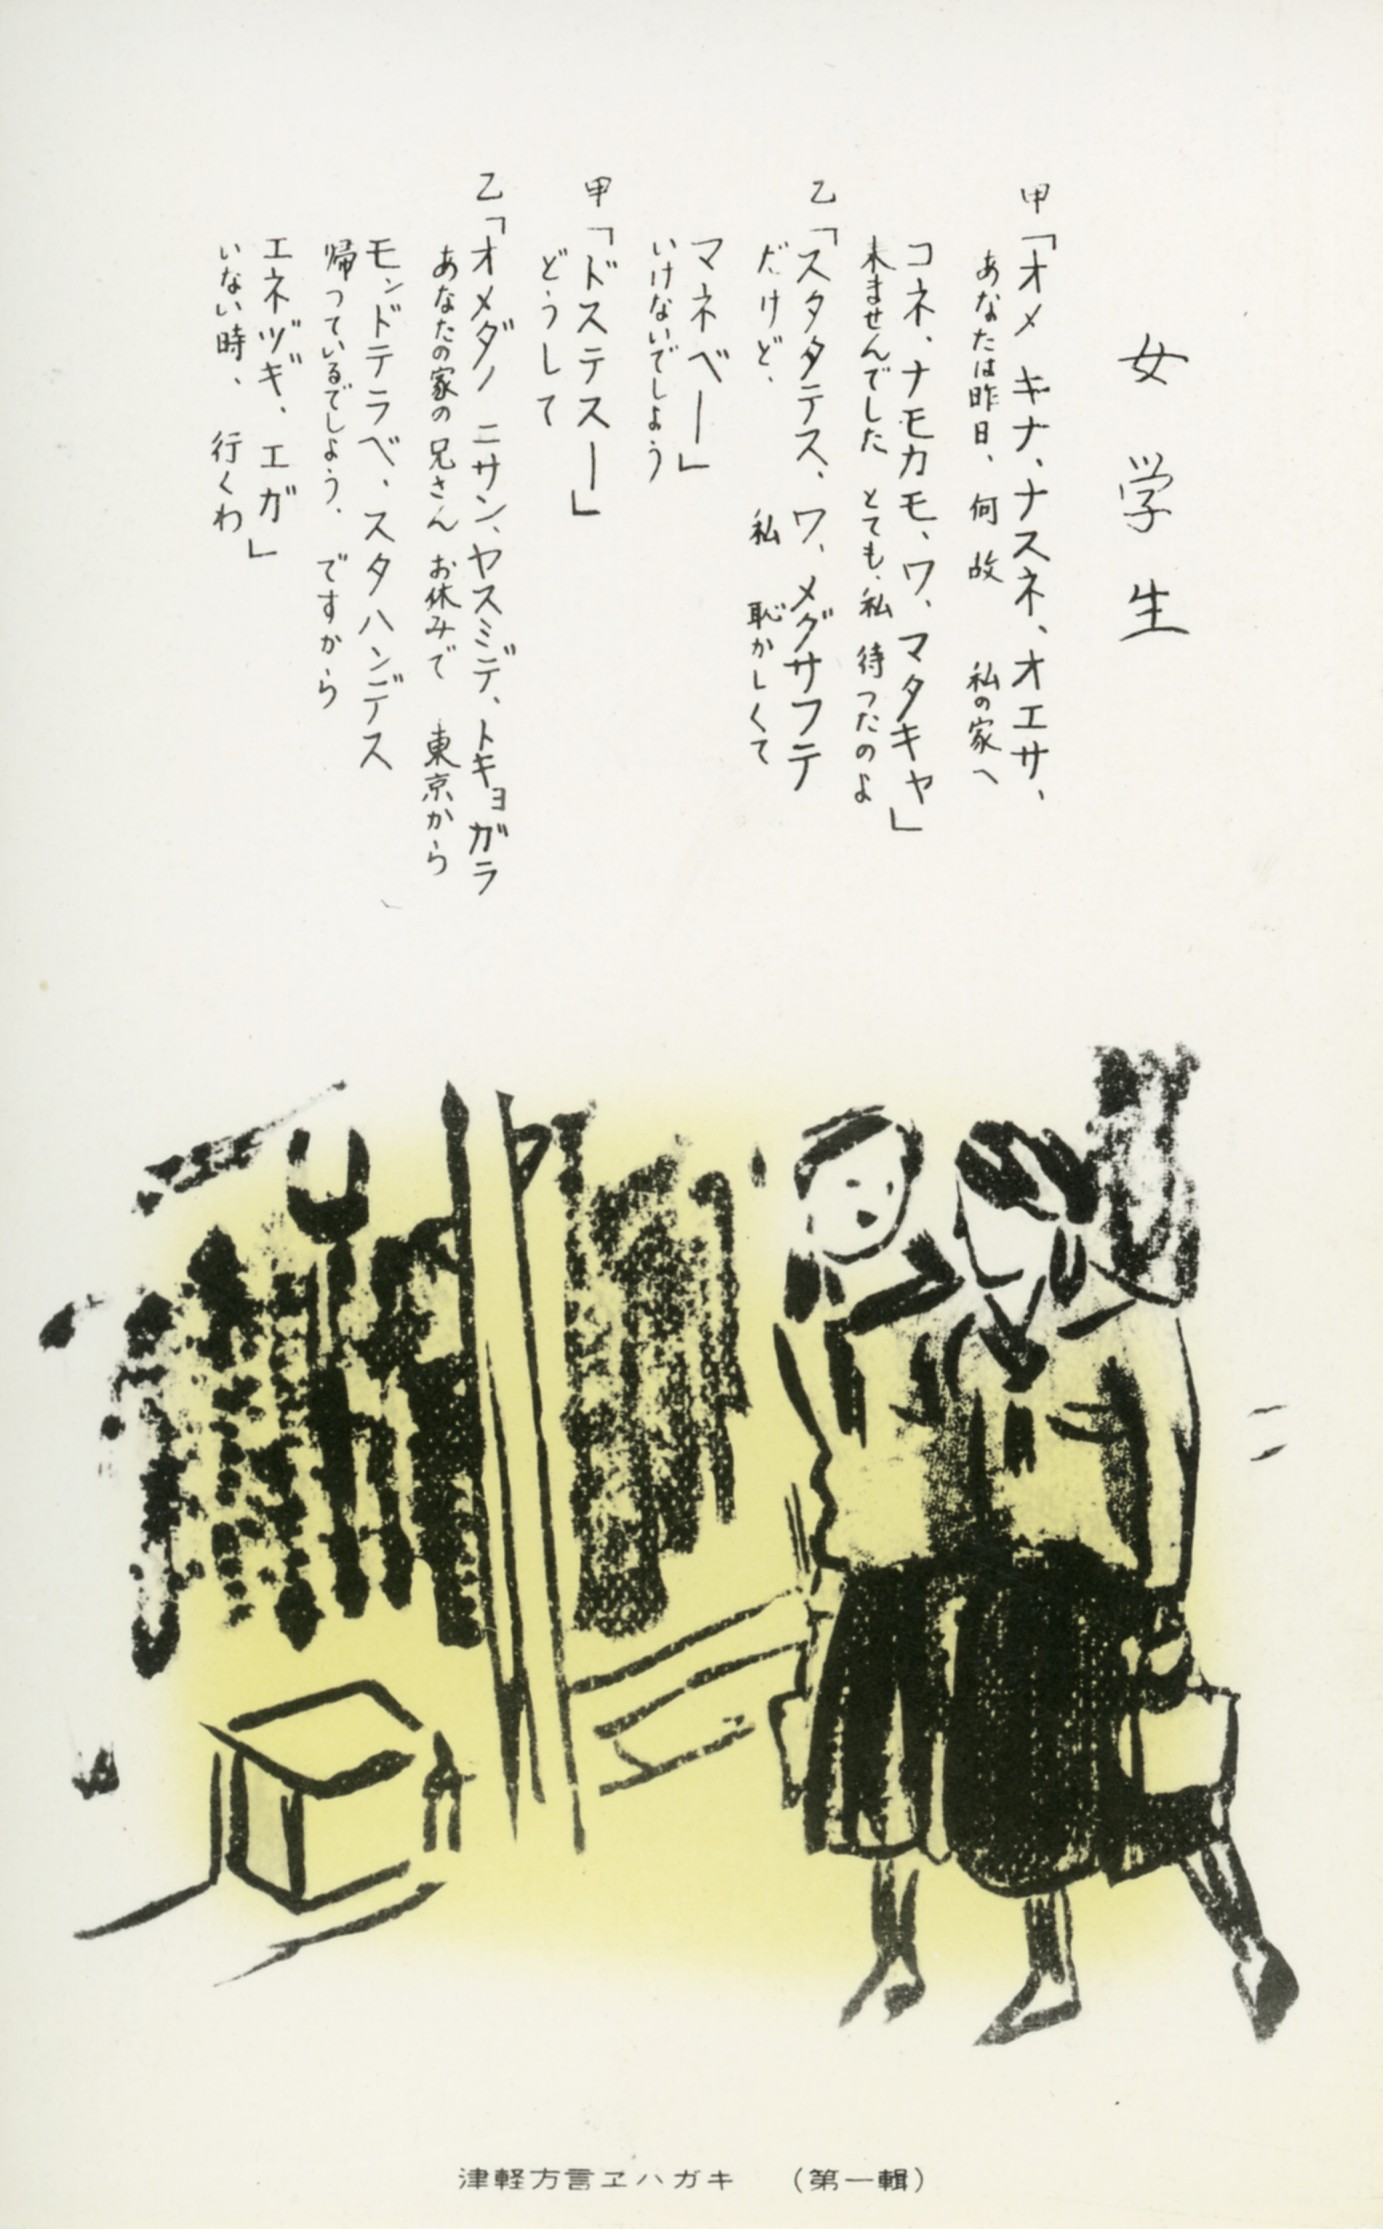 女学生
甲「オメ キナ、ナスネ、オエサ、
あなたは昨日、何故 私の家へ
コネ、ナモカモ、ワ、マタキヤ」
来ませんでした とても、私 待つたのよ
乙「スタタテス、ワ、メグサフテ
だけど、 私 恥かしくて
マネベー」
いけないでしよう
甲「ドステスー」
どうして
乙「オメダノ ニサン、ヤスミデ、トキョガラ
あなたの家の兄さん お休みで 東京から
モンドテラベ、スタハンデス
帰つているでしよう、ですから
エネヅギ、エガ」
いない時、行くわ
津軽方言ヱハガキ (第一輯)